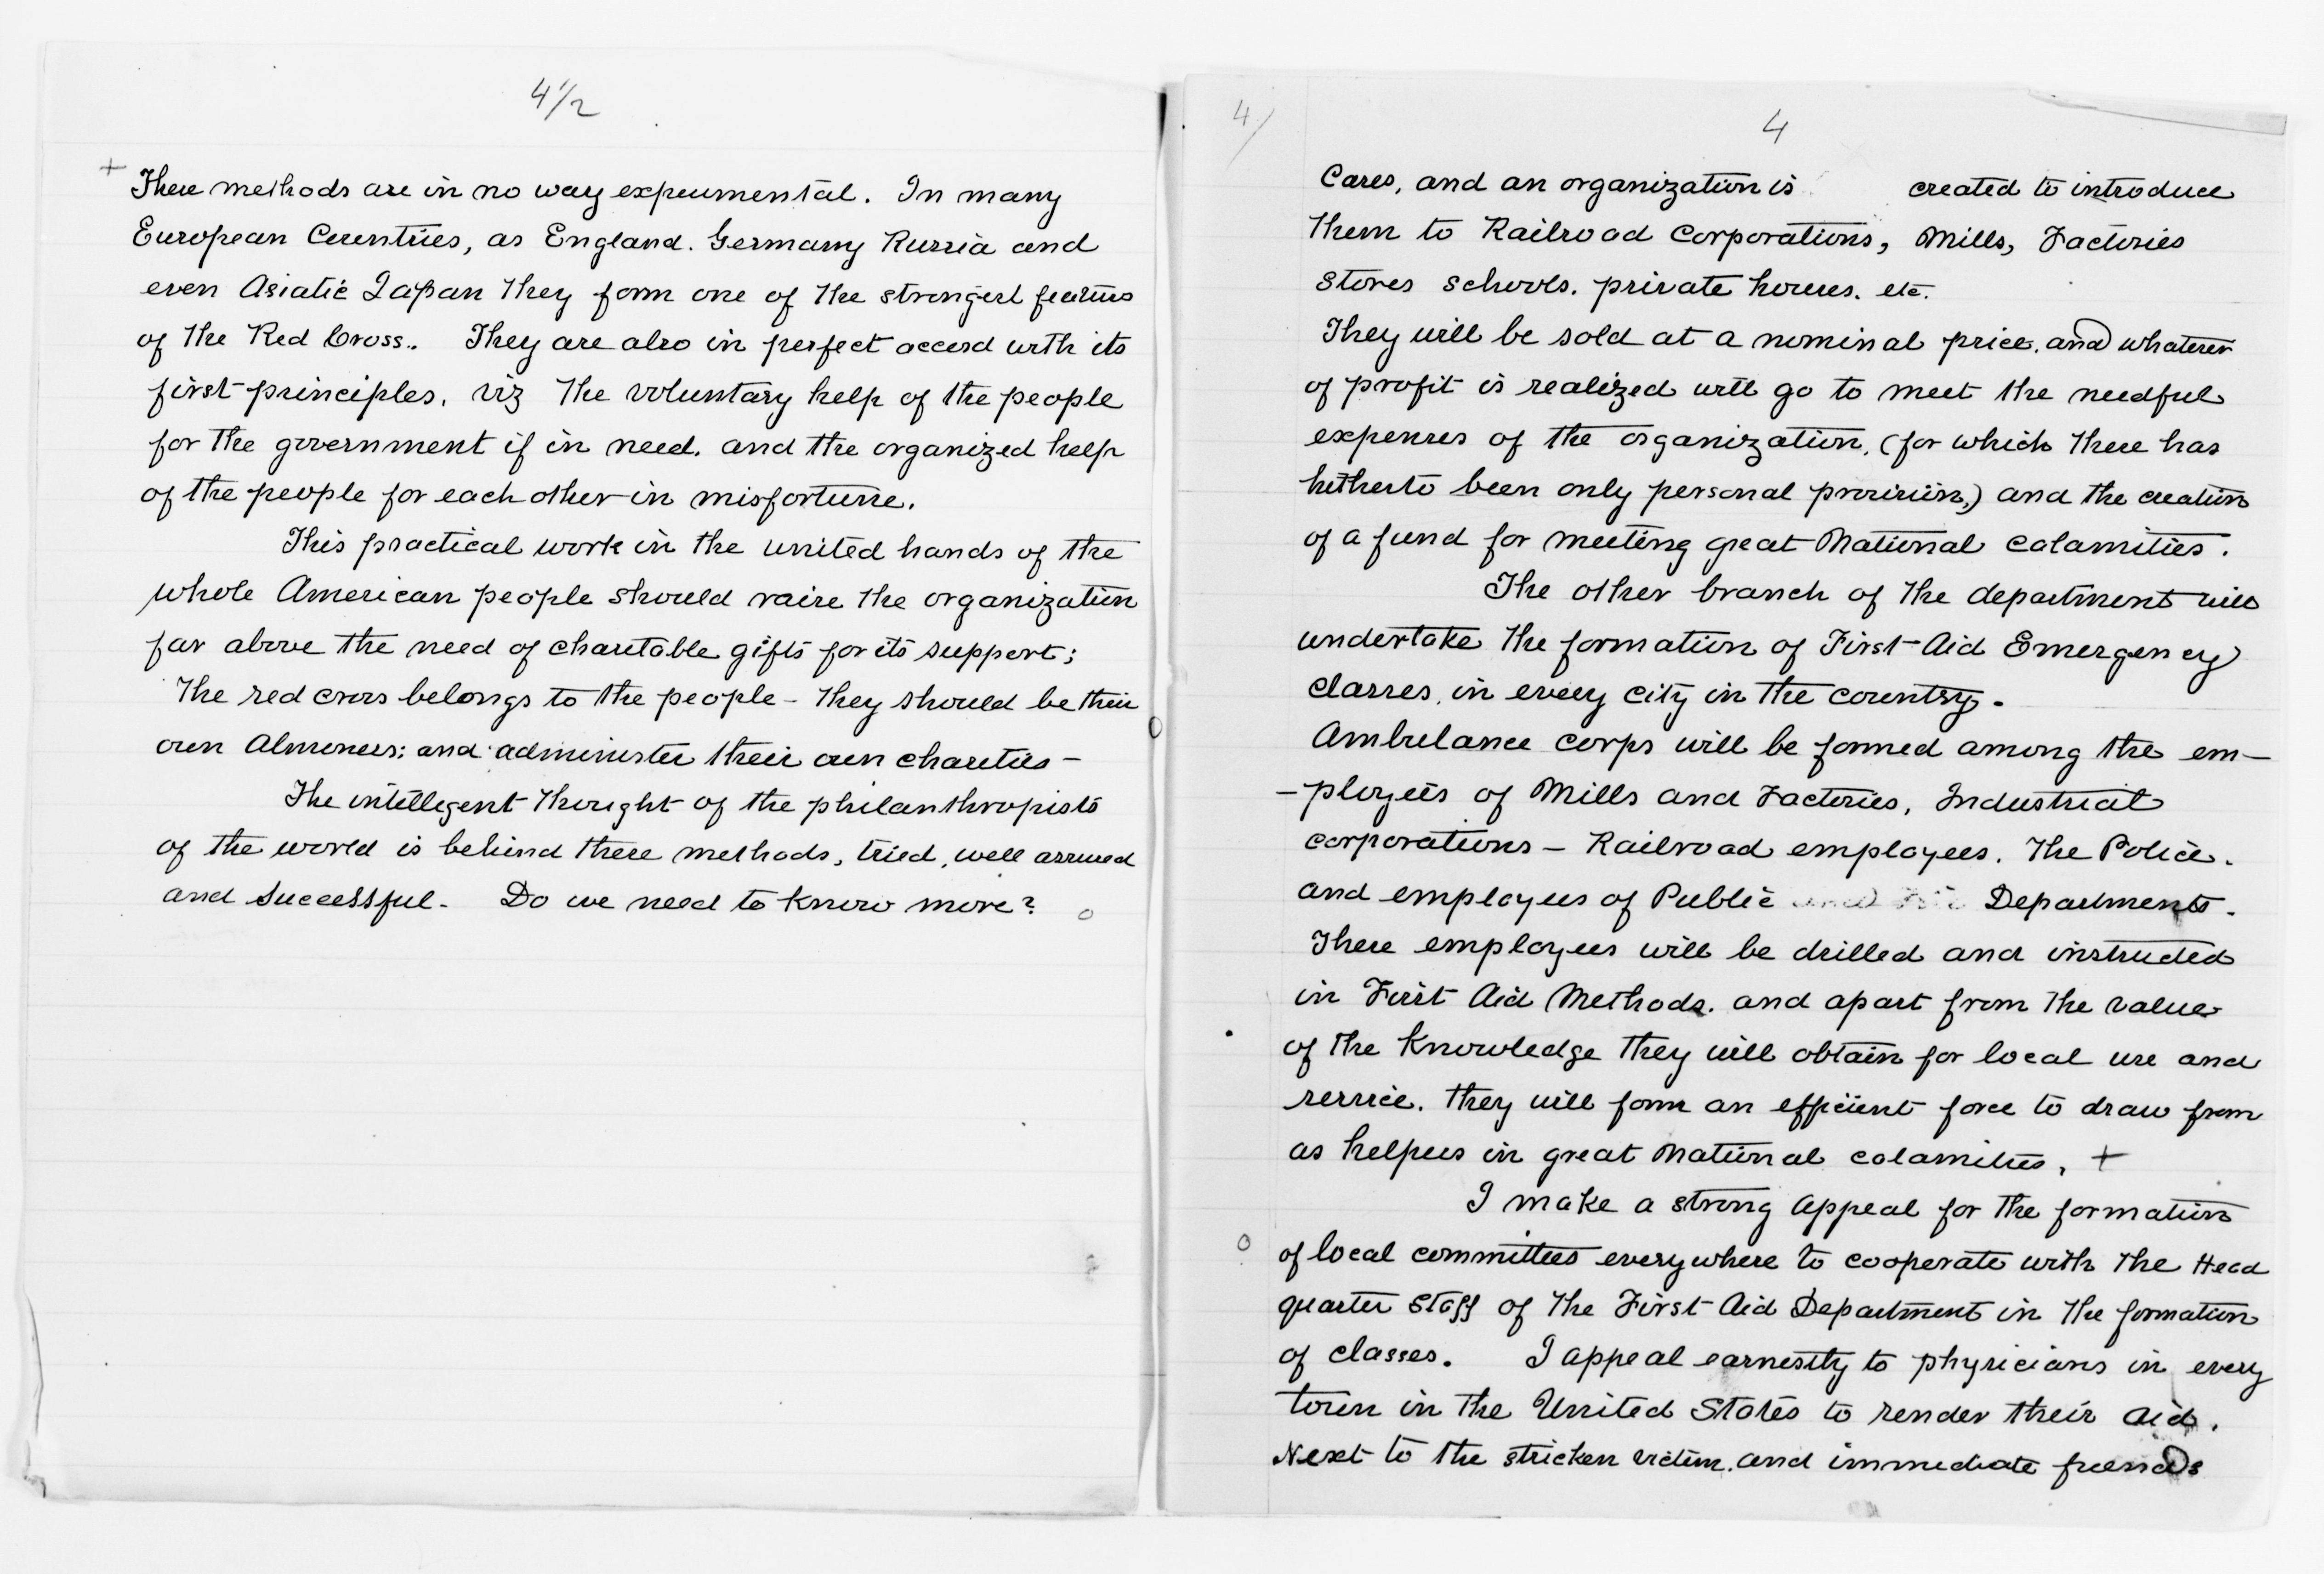 4 1/2
+ These methods are in no way experimental. In many
European Countries, as England. Germany Russia and
even Asiatic Japan they form one of the strongest features
of the Red Cross.. They are also in perfect accord with its
first principles, viz the voluntary help of the people
for the government if in need. and the organized help
of the people for each other in misfortune.
This practical work in the united hands of the
whole American people should raise the organization
far above the need of charitable gifts for its support;
The red cross belongs to the people - they should be their
own Almoners; and administer their own charities -
The intelligent thought of the philanthropists
of the world is behind these methods, tried, well assured
and successful. Do we need to know more? o
4/
4
Cases, and an organization is created to introduce
them to Railroad Corporations, Mills, Factories
stores schools. private houses. etc.
They will be sold at a nominal price. and whatever
of profit is realized will go to meet the needful
expenses of the organization, (for which there has
hitherto been only personal provision,) and the creation
of a fund for meeting great National calamities.
The other branch of the department will
undertake the formation of First Aid Emergency
classes, in every city in the country.
Ambulance corps will be formed among the em-
-ployees of Mills and Factories, Industrial
corporations - Railroad employees. The Police.
and employees of Public Departments.
These employees will be drilled and instructed
in First Aid Methods. and apart from the value
of the knowledge they will obtain for local use and
service. they will form an efficient force to draw from
as helpers in great National calamities, +
I make a strong appeal for the formation
o of local committees everywhere to cooperate with the Head
quarter staff of the First Aid Department in the formation
of classes. I appeal earnestly to physicians in every
town in the United States to render their aid.
Next to the stricken victim. and immediate friends